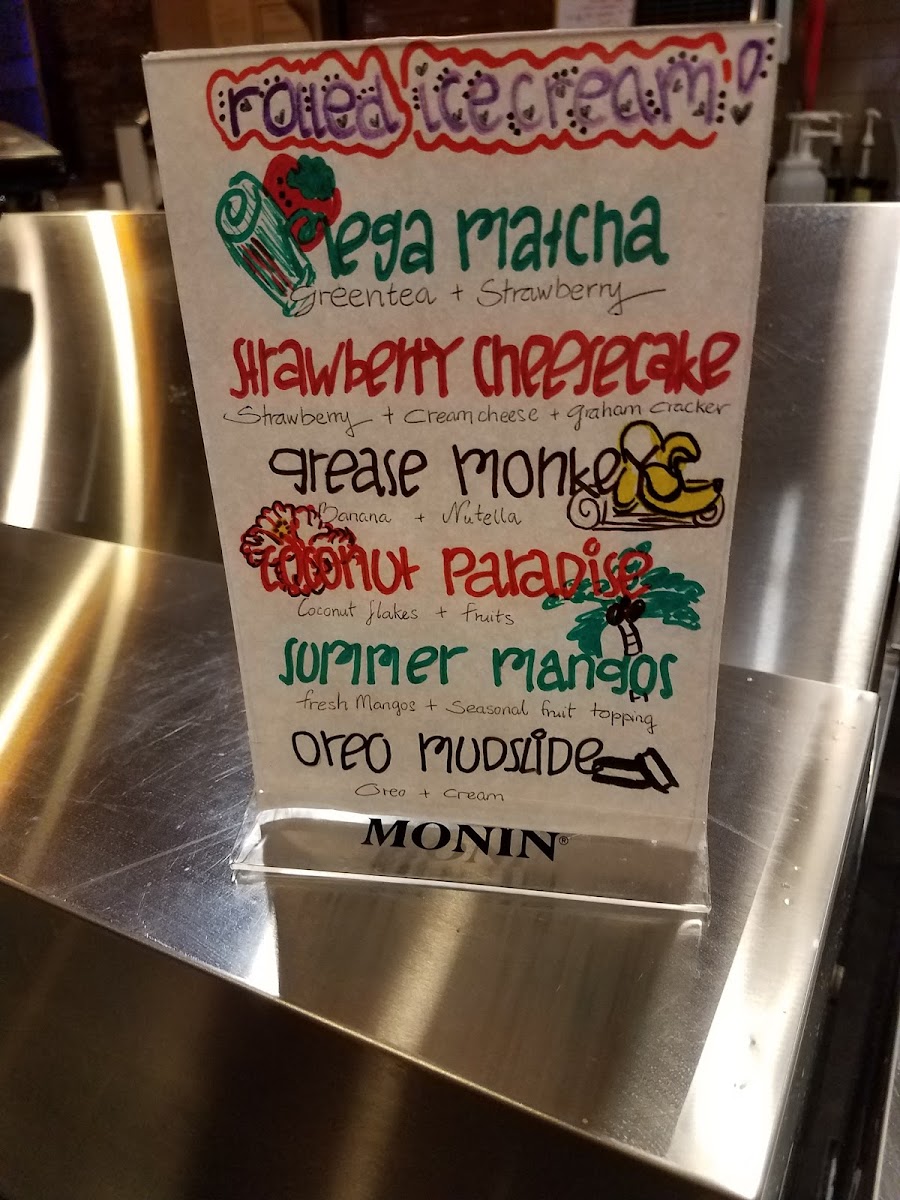 rolled icecream!
mega matcha
greentea + Strawberry
strawberry cheesecake
Strawberry + Creamcheese + graham cracker
grease monkey
Banana + Nutella
coconut paradise
Coconut flakes + fruits
summer mangos
fresh Mangos + Seasonal fruit topping
oreo mudslide
Oreo + Cream
MONIN®